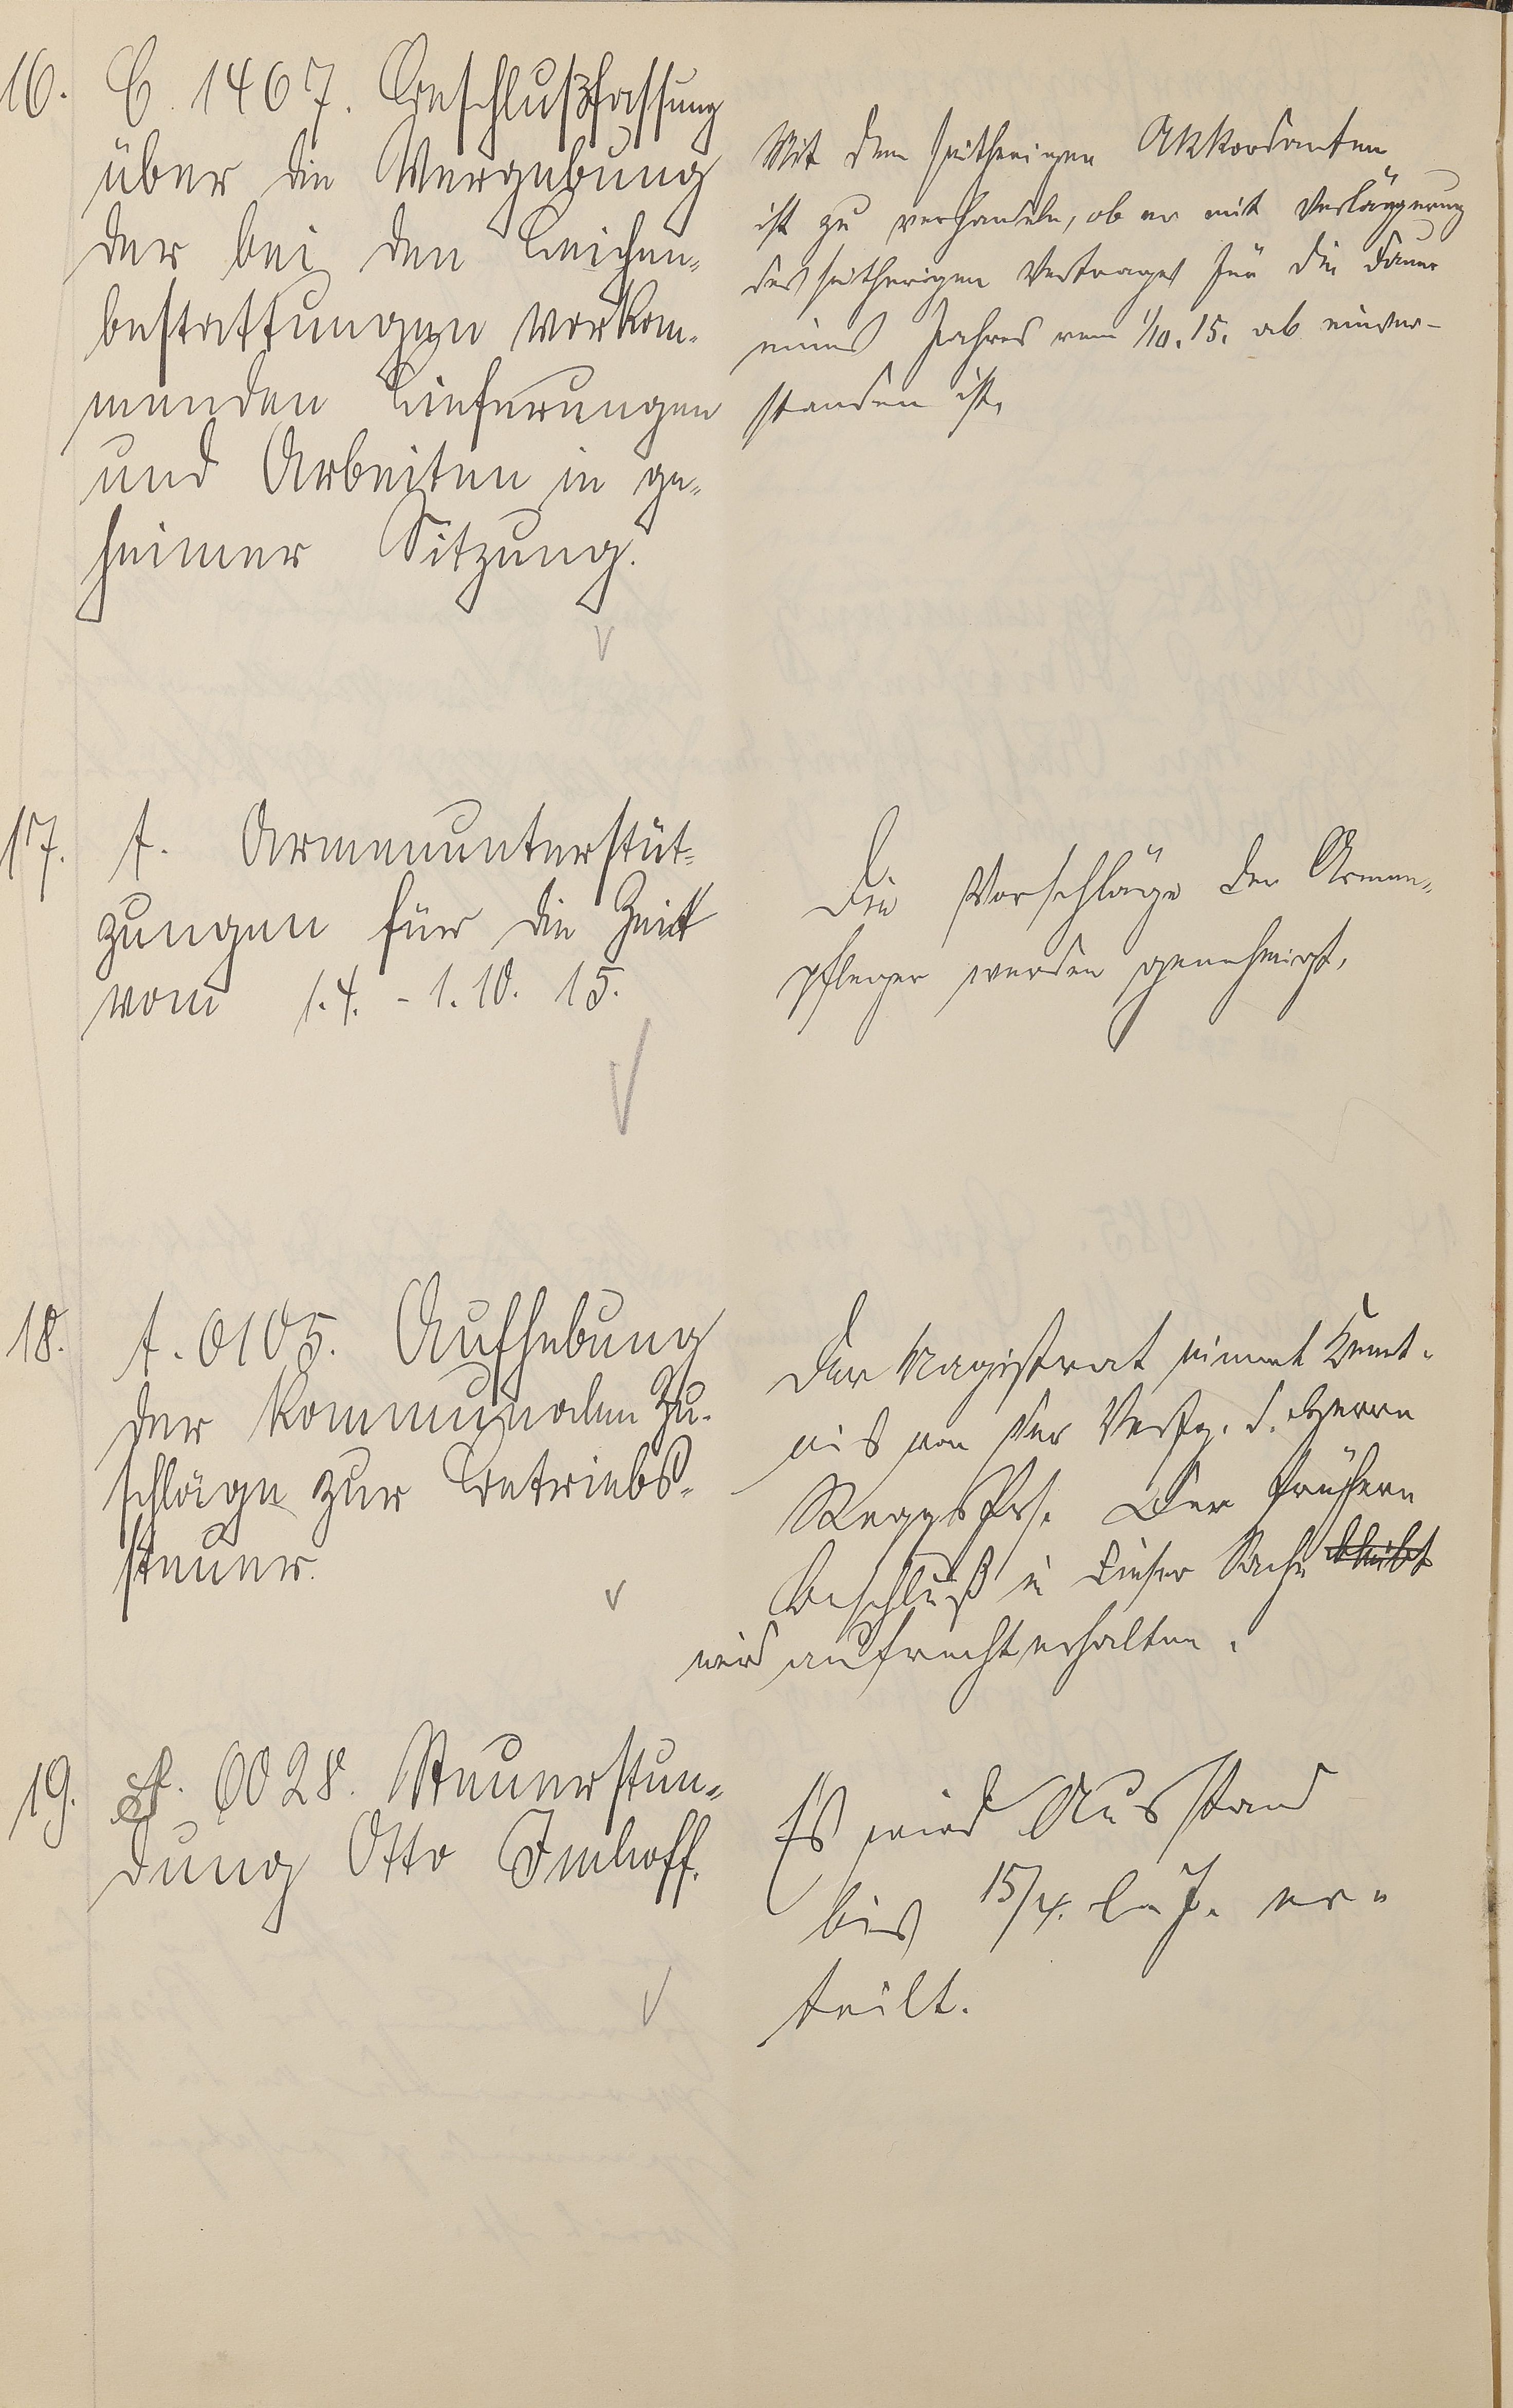 16. C. 1467. Beschlußfassung
über die Vergebung
der bei den Leichen-
bestattungen vorkom-
menden Lieferungen
und Arbeiten in ge-
heimer Sitzung.
Mit dem seitherigen Akkordanten
ist zu verhandeln, ob er mit Verlängerung
des seitherigen Vertrages für die Dauer
eines Jahres vom 1/10. 15. ab einver-
standen ist.
17. A. Armenunterstüt-
zungen für die Zeit
vom 1.4. - 1.10. 15.
Die Vorschläge der Armen-
pfleger werden genehmigt.
18. A. 0105. Aufhebung
der kommunalen Zu-
schläge zur Betriebs-
steuer.
Der Magistrat nimmt Kennt-
nis von der Verfg. d. Herrn
RegGsPrs. Der frühere
Beschluß in dieser Sache bleibt
wird aufrecht erhalten.
19. A. 0028. Steuerstun-
dung Otto Imhoff.
Es wird Ausstand
bis 15/4. l. J. er-
teilt.